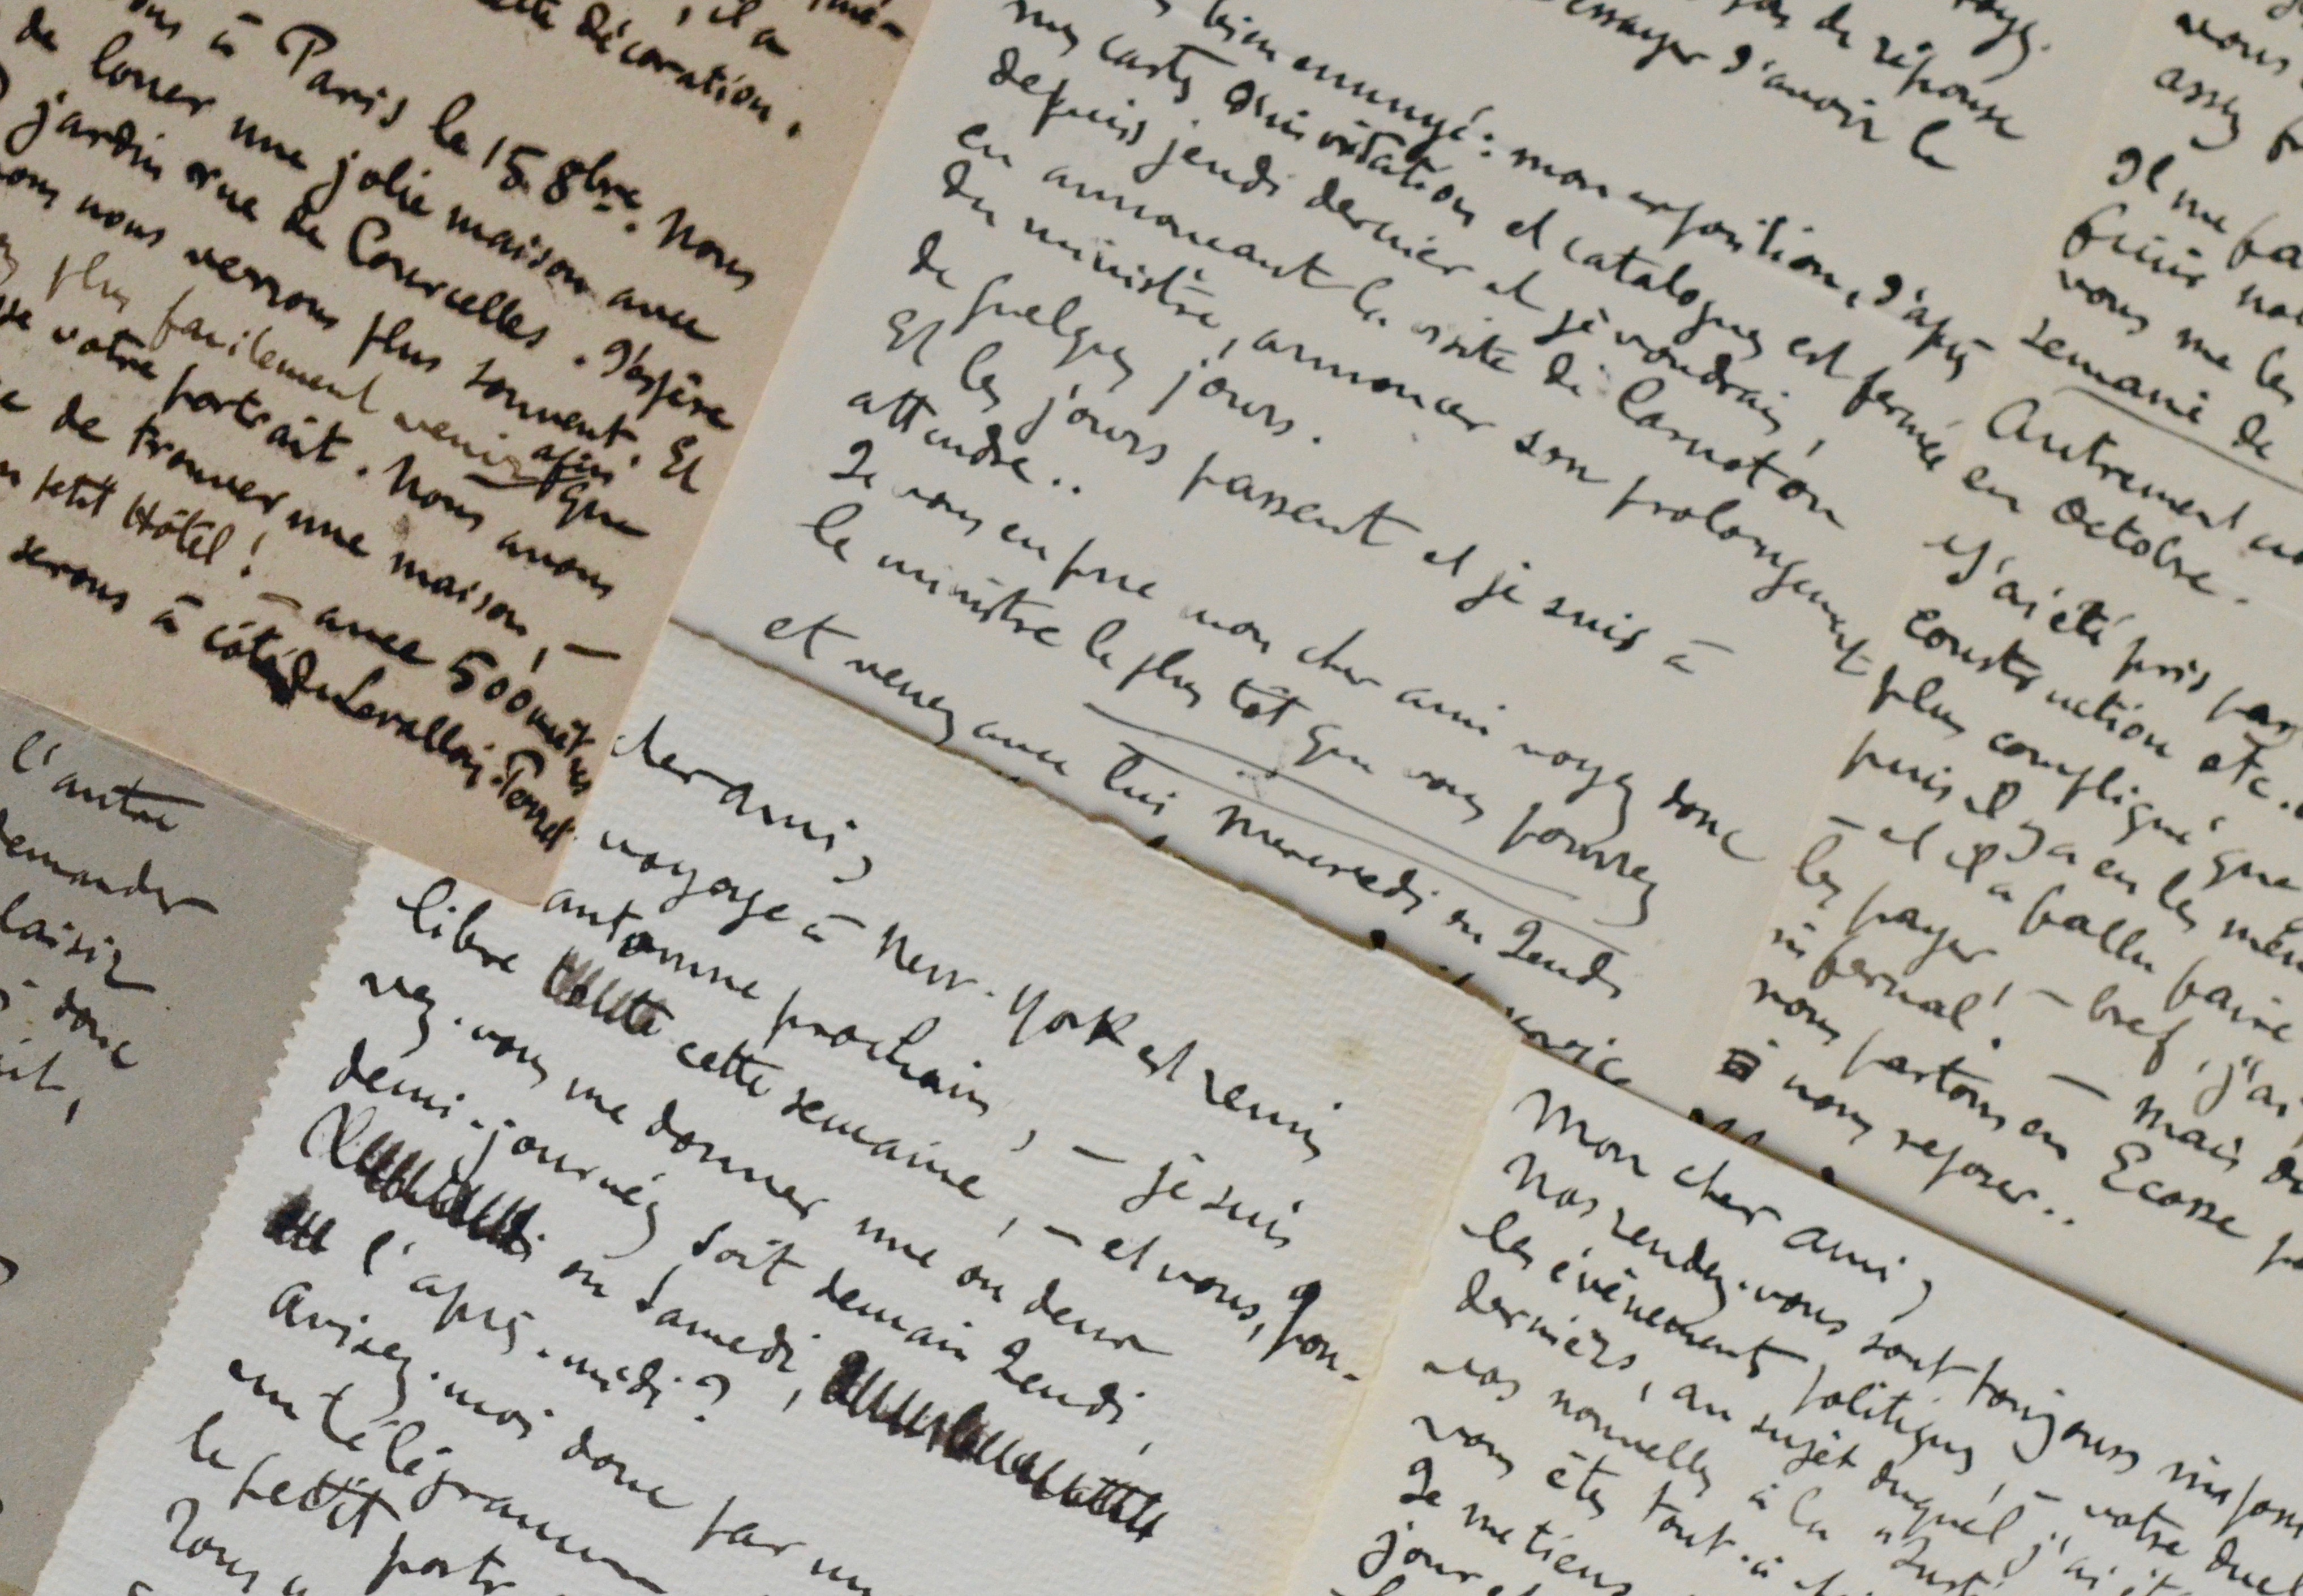 , il a
cette décoration.
à Paris le 15 8bre. Nous
de louer une jolie maison avec
jardin rue de Courcelles. J'espère
nous verrons plus souvent. Et
plus facilement venir afin que
votre portrait. Nous avons
de trouver une maison, —
petit Hôtel ! — avec 500 mètres
serons à côté du Levallois-Perret
l'autre
demander
donc
bien ennuyé : mon exposition, d'après
mes cartes d'invitation et catalogues est fermée
depuis jeudi dernier et je voudrais,
en annonçant la visite de Carnot ou
du ministre, annoncer son prolongement
de quelques jours.
Et les jours passent et je suis à
attendre..
Je vous en prie mon cher ami voyez donc
le ministre le plus tôt que vous pourrez
et venez avec lui mercredi ou Jeudi
de réponse
essayer d'avoir le
vous
assez
Il me fa
finir
vous me les
semaine de
Autrement
en Octobre.
J'ai été pris par
construction etc.
plus compliqué que
puis il y a eu les
— et il a fallu faire
les payer ! — bref, j'ai
infernal. — mais
nous partons en Ecosse
nous reposer..
cher ami,
voyage à New-York est remis
automne prochain, — je suis
libre toute cette semaine, — et vous, pou-
vez-vous me donner une ou deux
demi-journées soit demain Jeudi,
ou Samedi,
l'après-midi ?
Avisez-moi donc par un
télégramme
le petit
Mon cher ami,
Nos rendez-vous sont toujours
les événements politiques, — votre duel
derniers, au sujet duquel j'ai
vos nouvelles à la "
vous êtes tout-à
Je me tiens
jour et